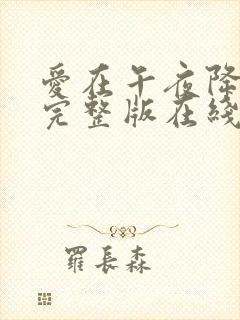 愛在午夜降
完整版在綫
羅長森